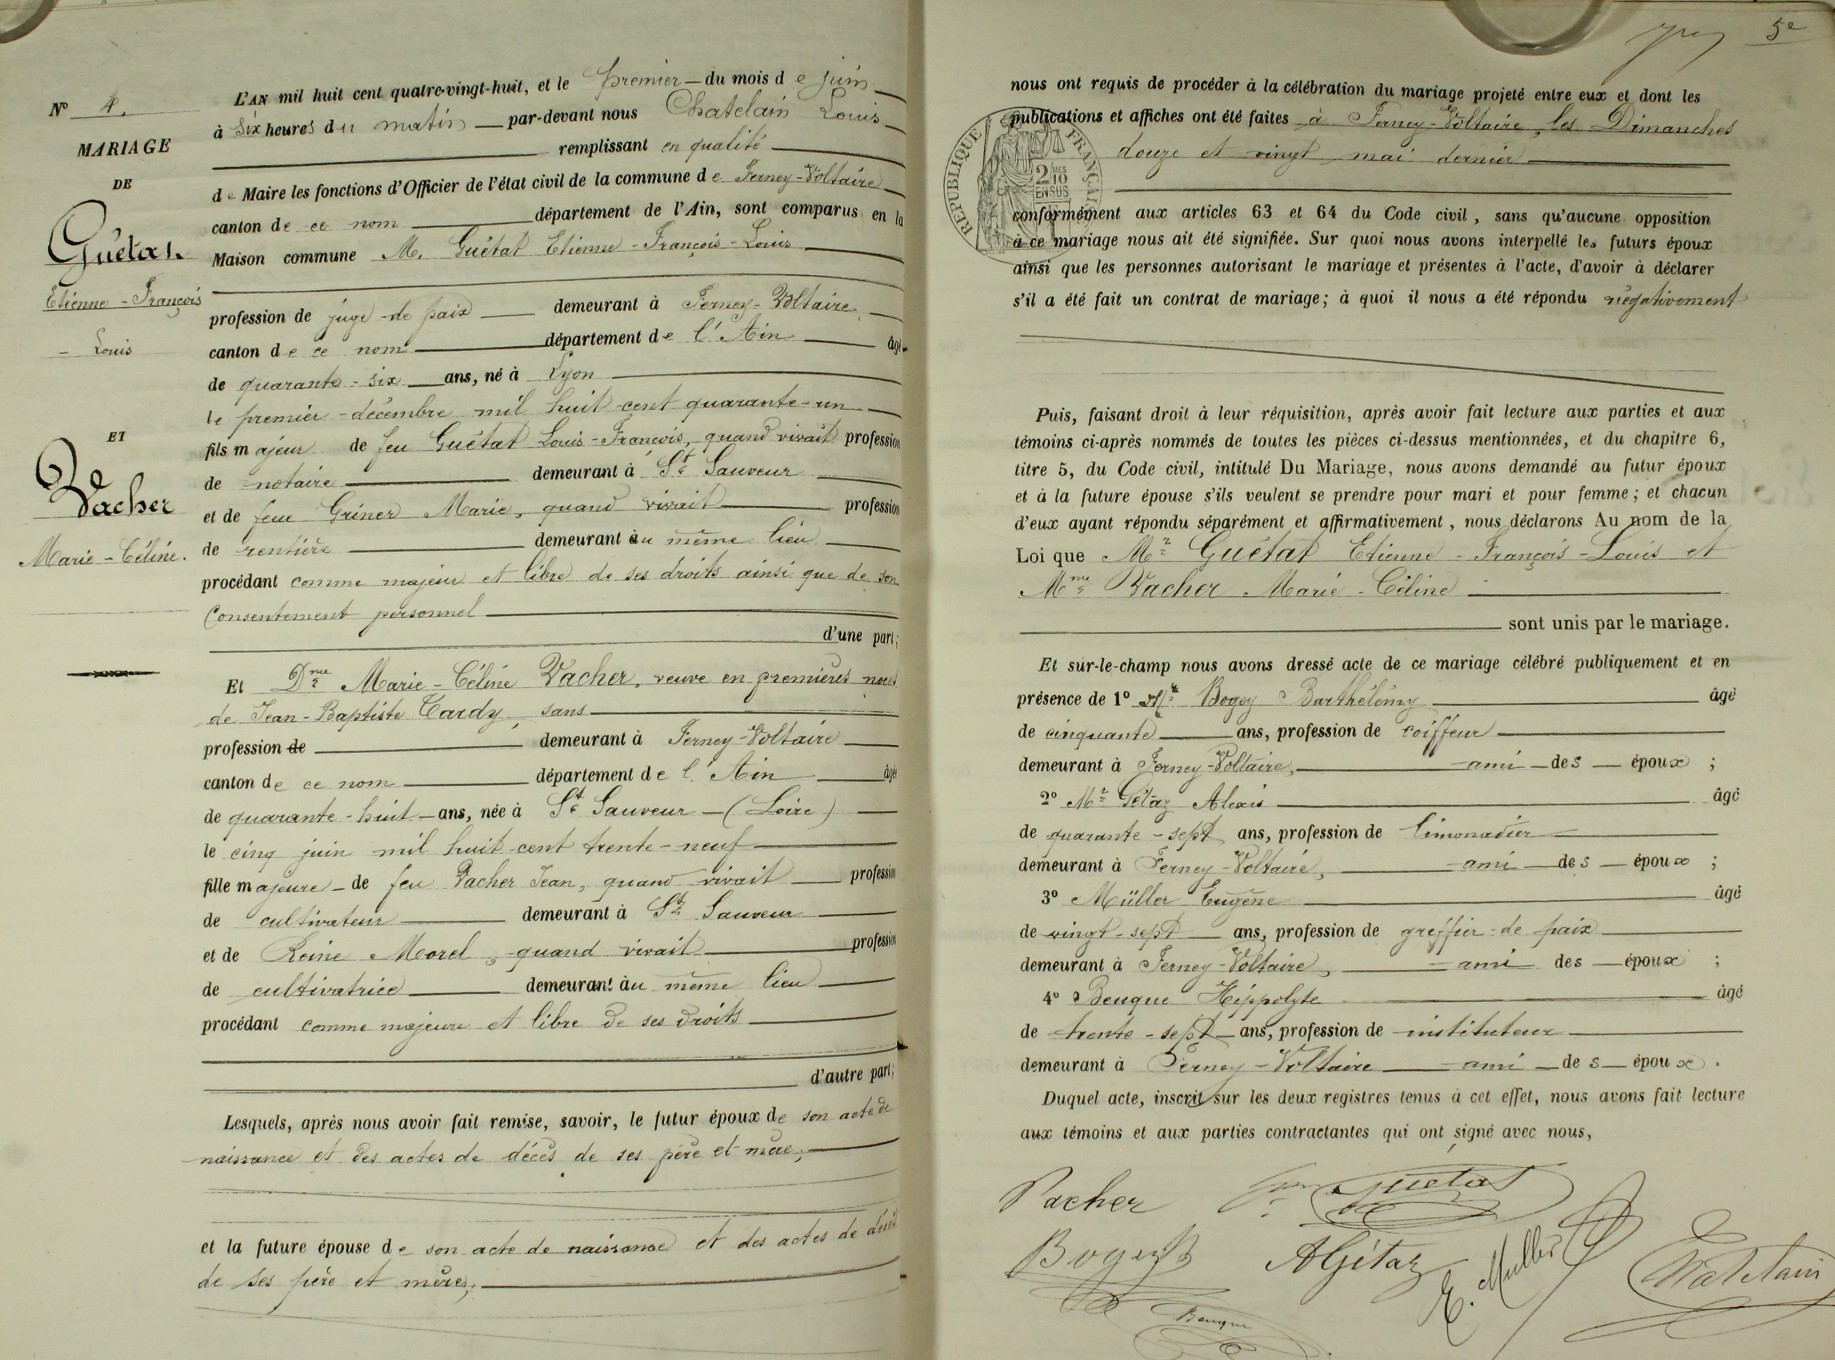 N° 4.
MARIAGE
DE
Guétat
Etienne - François
- Louis
ET
Vacher
Marie - Céline.
L'AN mil huit cent quatre-vingt-huit, et le premier du mois de juin
à six heures du matin par-devant nous Chatelain Louis
remplissant en qualité
de Maire les fonctions d'Officier de l'état civil de la commune de Ferney-Voltaire
canton de ce nom département de l'Ain, sont comparus en la
Maison commune M. Guétat Etienne - François - Louis
profession de juge de paix demeurant à Ferney-Voltaire,
canton de ce nom département de l'Ain âgé
de quarante-six ans, né à Lyon
le premier décembre mil huit cent quarante-un
fils majeur de feu Guétat Louis-François, quand vivait profession
de notaire demeurant à St Sauveur
et de feue Griner Marie, quand vivait profession
de rentière demeurant au même lieu
procédant comme majeur et libre de ses droits ainsi que de son
consentement personnel
d'une part;
Et Dme Marie-Céline Vacher, veuve en premières noces
de Jean-Baptiste Tardy, sans
profession de demeurant à Ferney-Voltaire
canton de ce nom département de l'Ain âgée
de quarante-huit ans, née à St Sauveur (Loire)
le cinq juin mil huit cent trente-neuf
fille majeure de feu Vacher Jean, quand vivait profession
de cultivateur demeurant à St Sauveur
et de Reine Morel, quand vivait profession
de cultivatrice demeurant au même lieu
procédant comme majeure et libre de ses droits
d'autre part;
Lesquels, après nous avoir fait remise, savoir, le futur époux de son acte de
naissance et des actes de décès de ses père et mère,
et la future épouse de son acte de naissance et des actes de décès
de ses père et mères,
5e
nous ont requis de procéder à la célébration du mariage projeté entre eux et dont les
publications et affiches ont été faites à Ferney-Voltaire, les Dimanches
douze et vingt mai dernier
RÉPUBLIQUE FRANÇAISE
2/10
EN SUS
conformément aux articles 63 et 64 du Code civil, sans qu'aucune opposition
à ce mariage nous ait été signifiée. Sur quoi nous avons interpellé les futurs époux
ainsi que les personnes autorisant le mariage et présentes à l'acte, d'avoir à déclarer
s'il a été fait un contrat de mariage; à quoi il nous a été répondu négativement
Puis, faisant droit à leur réquisition, après avoir fait lecture aux parties et aux
témoins ci-après nommés de toutes les pièces ci-dessus mentionnées, et du chapitre 6,
titre 5, du Code civil, intitulé Du Mariage, nous avons demandé au futur époux
et à la future épouse s'ils veulent se prendre pour mari et pour femme; et chacun
d'eux ayant répondu séparément et affirmativement, nous déclarons Au nom de la
Loi que Mr Guétat Etienne - François - Louis et
Mme Vacher Marie - Céline
sont unis par le mariage.
Et sur-le-champ nous avons dressé acte de ce mariage célébré publiquement et en
présence de 1° Mr Bogey Barthélémy âgé
de cinquante ans, profession de coiffeur
demeurant à Ferney-Voltaire, ami des époux;
2° Mr Gétaz Alexis âgé
de quarante-sept ans, profession de limonadier
demeurant à Ferney-Voltaire, ami des époux;
3° Müller Eugène âgé
de vingt-sept ans, profession de greffier de paix
demeurant à Ferney-Voltaire, ami des époux;
4° Beuque Hippolyte âgé
de trente-sept ans, profession de instituteur
demeurant à Ferney-Voltaire ami des époux.
Duquel acte, inscrit sur les deux registres tenus à cet effet, nous avons fait lecture
aux témoins et aux parties contractantes qui ont signé avec nous,
Vacher Guetat
Bogey B AGétaz E. Muller Chatelain
Beuque